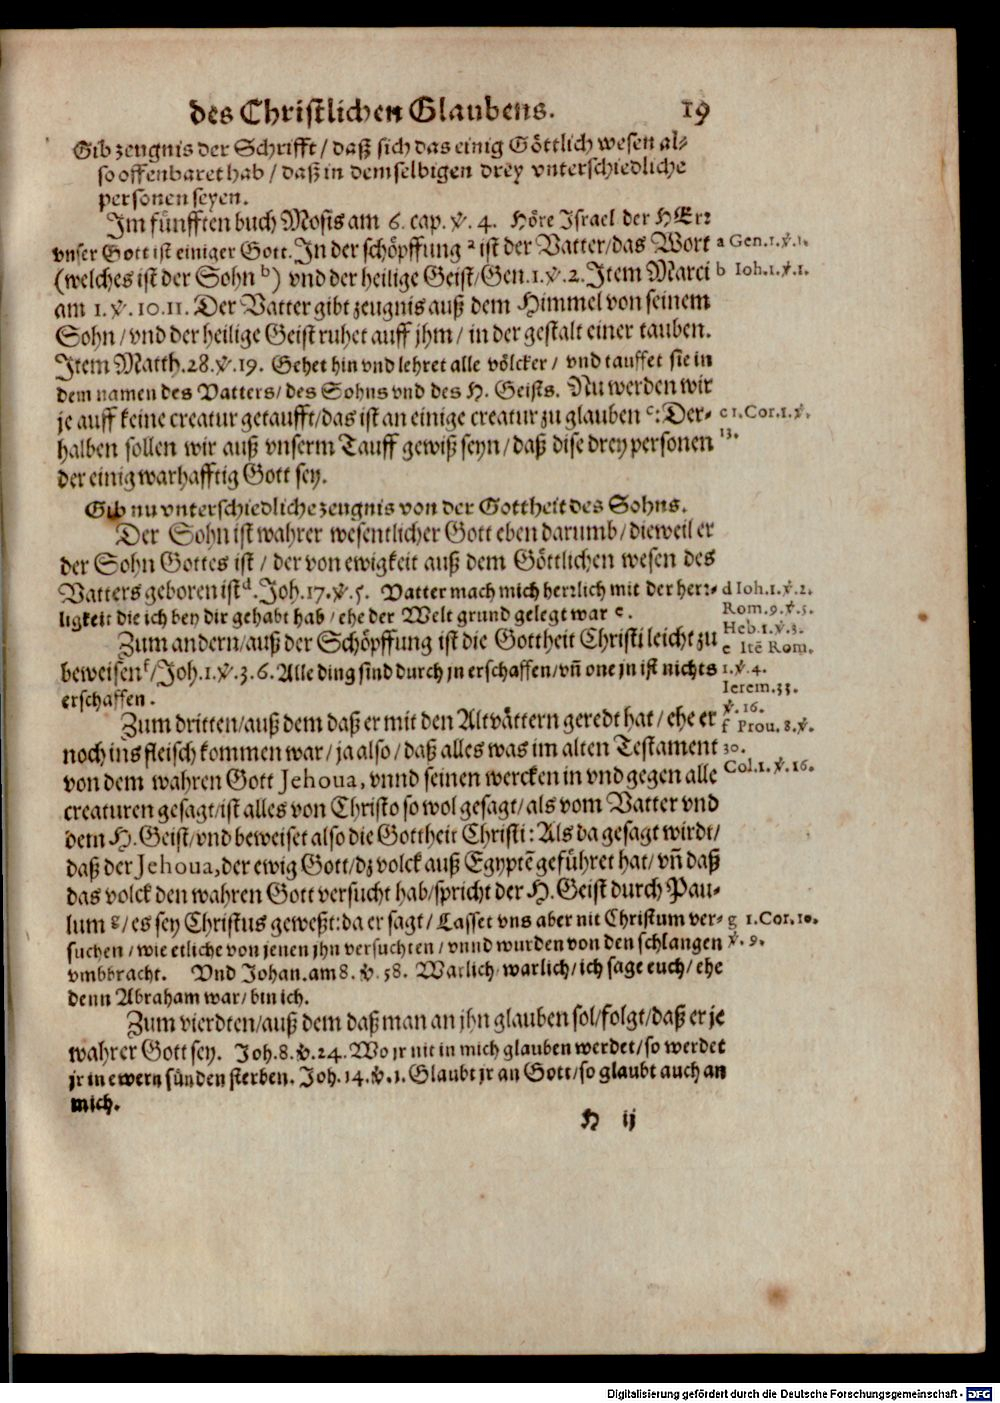 des Christlichen Glaubens. 19
Gib zeugnis der Schrifft / daß sich das einig Göttlich wesen al-
so offenbaret hab / daß in demselbigen drey vnterschiedliche
personen seyen.
Im fünfften buch Mosis am 6. cap. ℣. 4. Höre Israel der HErr
vnser Gott ist einiger Gott. In der schöpffung a ist der Vatter/das Wort
(welches ist der Sohn b) vnd der heilige Geist/Gen.1.℣.2. Item Marci
am 1.℣.10.11. Der Vatter gibt zeugnis auß dem Himmel von seinem
Sohn/vnd der heilige Geist ruhet auff jhm/ in der gestalt einer tauben.
Item Matth.28.℣.19. Gehet hin vnd lehret alle völcker/ vnd tauffet sie in
dem namen des Vatters/des Sohns vnd des H. Geists. Nu werden wir
je auff keine creatur getaufft/das ist an einige creatur zu glauben c: Der-
halben sollen wir auß vnserm Tauff gewiß seyn/daß dise drey personen
der einig warhafftig Gott sey.
Gib nu vnterschiedliche zeugnis von der Gottheit des Sohns.
Der Sohn ist wahrer wesentlicher Gott eben darumb/dieweil er
der Sohn Gottes ist/ der von ewigkeit auß dem Göttlichen wesen des
Vatters geboren ist d. Joh.17.℣.5. Vatter mach mich herrlich mit der herr-
ligkeit die ich bey dir gehabt hab/ehe der Welt grund gelegt war e.
Zum andern/auß der Schöpffung ist die Gottheit Christi leicht zu
beweisen f/Joh.1.℣.3.6. Alle ding sind durch jn erschaffen/vn̄ one jn ist nichts
erschaffen.
Zum dritten/auß dem daß er mit den Altvättern geredt hat/ehe er
noch ins fleisch kommen war/ja also/daß alles was im alten Testament
von dem wahren Gott Jehoua, vnnd seinen wercken in vnd gegen alle
creaturen gesagt/ist alles von Christo so wol gesagt/als vom Vatter vnd
dem H. Geist/vnd beweiset also die Gottheit Christi: Als da gesagt wirdt/
daß der Jehoua, der ewig Gott/dz volck auß Egyptē geführet hat/vn̄ daß
das volck den wahren Gott versucht hab/spricht der H. Geist durch Pau-
lum g/es sey Christus geweßt: da er sagt/Lasset vns aber nit Christum ver-
suchen/wie etliche von jenen jhn versuchten/vnnd wurden von den schlangen
vmbbracht. Vnd Johan. am 8. ℣. 58. Warlich warlich/ich sage euch/ehe
denn Abraham war/bin ich.
Zum vierdten/auß dem daß man an jhn glauben sol/folgt/daß er je
wahrer Gott sey. Joh.8.℣.24. Wo jr nit in mich glauben werdet/so werdet
jr in ewern sünden sterben. Joh.14.℣.1. Glaubt jr an Gott/so glaubt auch an
mich.
H ij
a Gen.1.℣.1.
b Ioh.1.℣.1.
c 1.Cor.1.℣.
13.
d Ioh.1.℣.2.
Rom.9.℣.5.
Heb.1.℣.3.
e Itē Rom.
1.℣.4.
Ierem.33.
℣.16.
f Prou.8.℣.
30.
Col.1.℣.16.
g 1.Cor.10.
℣.9.
Digitalisierung gefördert durch die Deutsche Forschungsgemeinschaft - DFG